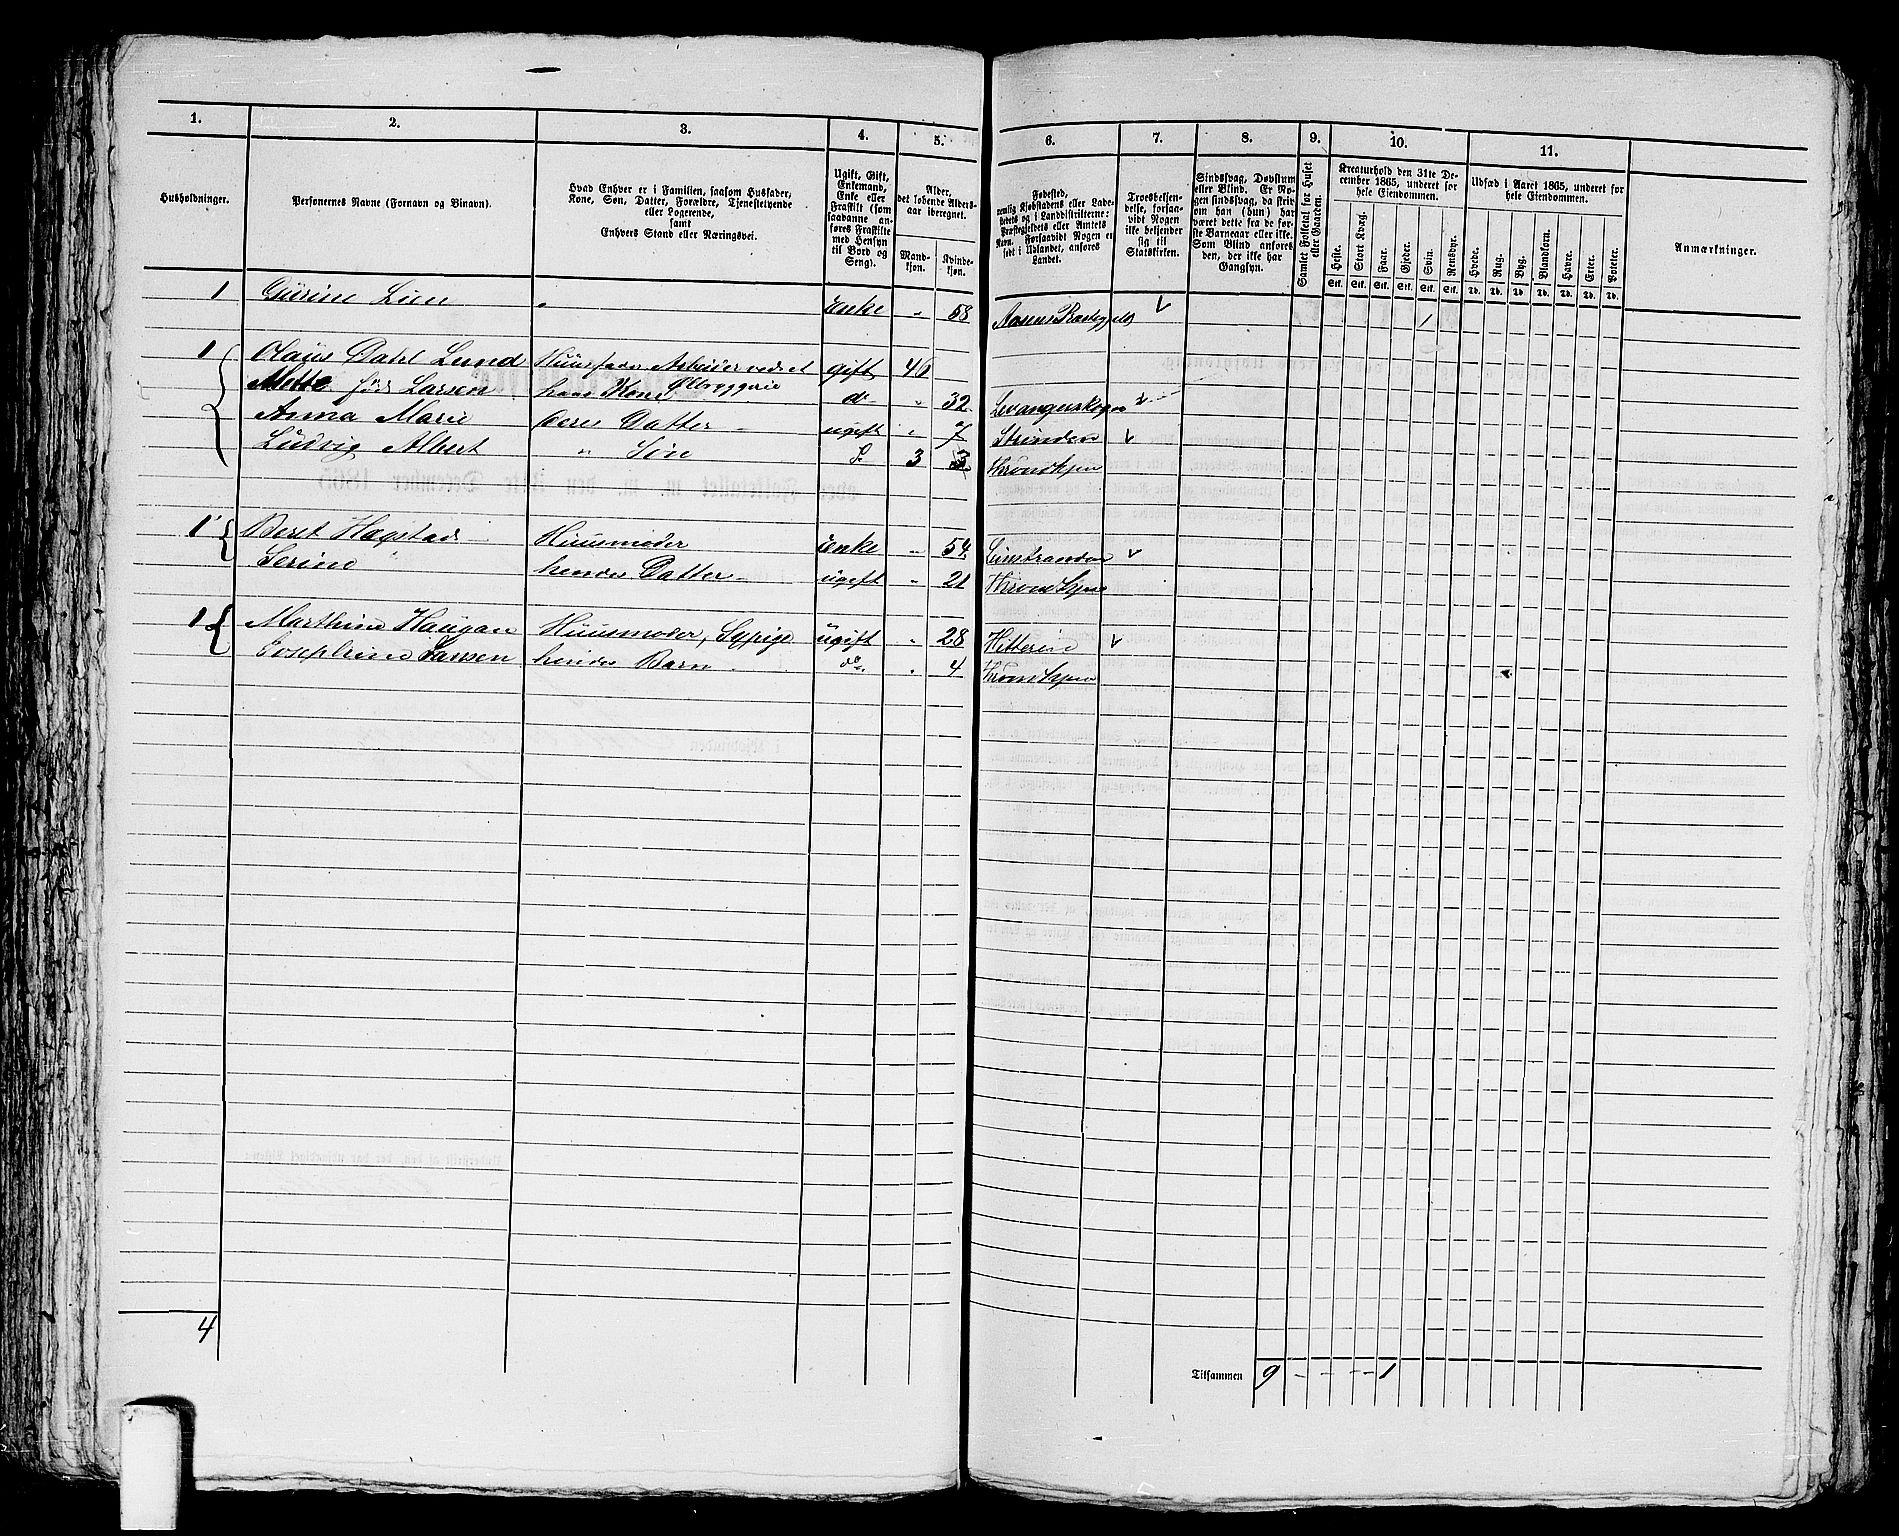 1. 2. 3. 4. 5. 6. 7. 8. 9. 10. 11.
Husholdninger.
Personernes Navne (Fornavn og Binavn).
Hvad Enhver er i Familien, saasom Husfader, Kone, Søn, Datter, Forældre, Tjenestetyende eller Logerende, samt Enhvers Stand eller Næringsvei.
Ugift, Gift, Enkemand, Enke eller Fraskilt (som saadanne anføres Fraskilte med Hensyn til Bord og Seng).
Alder, det løbende Alders-aar iberegnet.
Mandkjøn. Kvindekjøn.
Fødested, nemlig Kjøbstadens eller Ladestedets og i Landdistrikterne: Præstegjeldets eller Amtets Navn. Forsaavidt Nogen er født i Udlandet, anføres Landet.
Troesbekjendelse, forsaavidt Nogen ikke bekjender sig til Statskirken.
Sindssvag, Døvstum eller Blind. Er Nogen sindssvag, da skrives om han (hun) har været dette fra de første Barneaar eller ikke. Som Blind anføres den, der ikke har Gangsyn.
Samlet Folketal for Huset eller Gaarden.
Kreaturhold den 31te December 1865, underet for hele Eiendommen.
Heste. Stort Kvæg. Faar. Gjeder. Svin. Rensdyr.
Stk. Stk. Stk. Stk. Stk. Stk.
Udsæd i Aaret 1865, underet for hele Eiendommen.
Hvede. Rug. Byg. Blandkorn. Havre. Erter. Poteter.
Td. Td. Td. Td. Td. Td. Td.
Anmærkninger.
1 Gurine Lien " Enke " 58 Aasens 1
1 Olaus Dahl Lund Huusfader Arbeider ved et gift 46
Ølbryggerie
Mette født Larsen hans Kone do " 32 Levangerskogn
Anna Marie deres Datter ugift " 7 Strinden
Ludvig Albert " Søn 3 Throndhjem
1 Beret Hagstad Huusmoder Enke " 54
Serine " hendes Datter ugift " 21 Throndhjem
1 Marthine Haugan Huusmoder, Sypige ugift " 28 Hitteren
Josephine Larsen hendes Barn do. " 4 Throndhjem
4
Tilsammen 9 - - - - 1